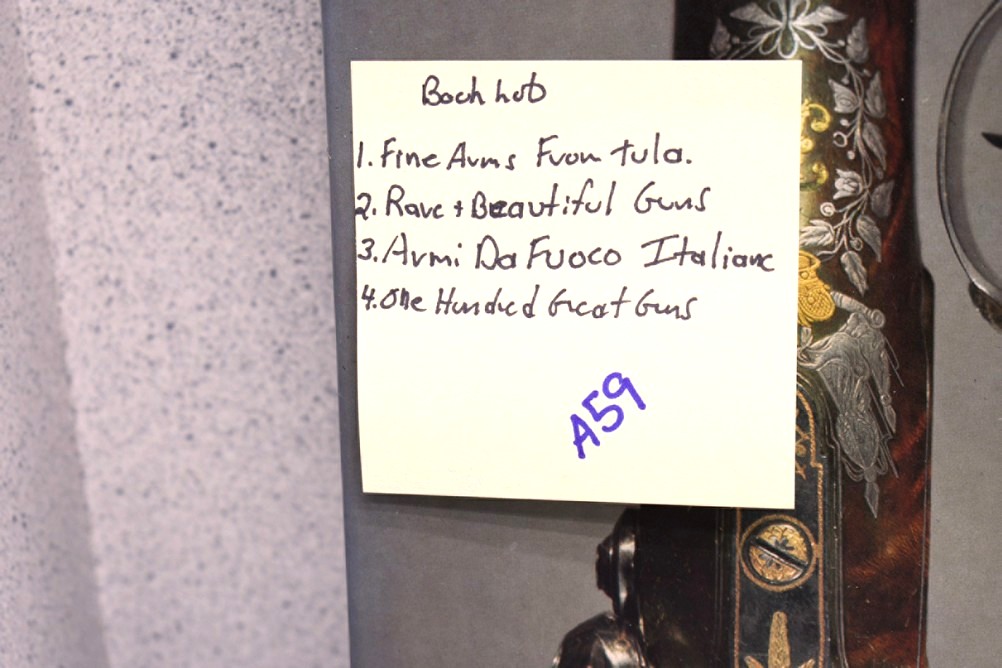 Book Lot
1. Fine Arms From Tula.
2. Rare + Beautiful Guns
3. Armi Da Fuoco Italiane
4. One Hundred Great Guns
A59